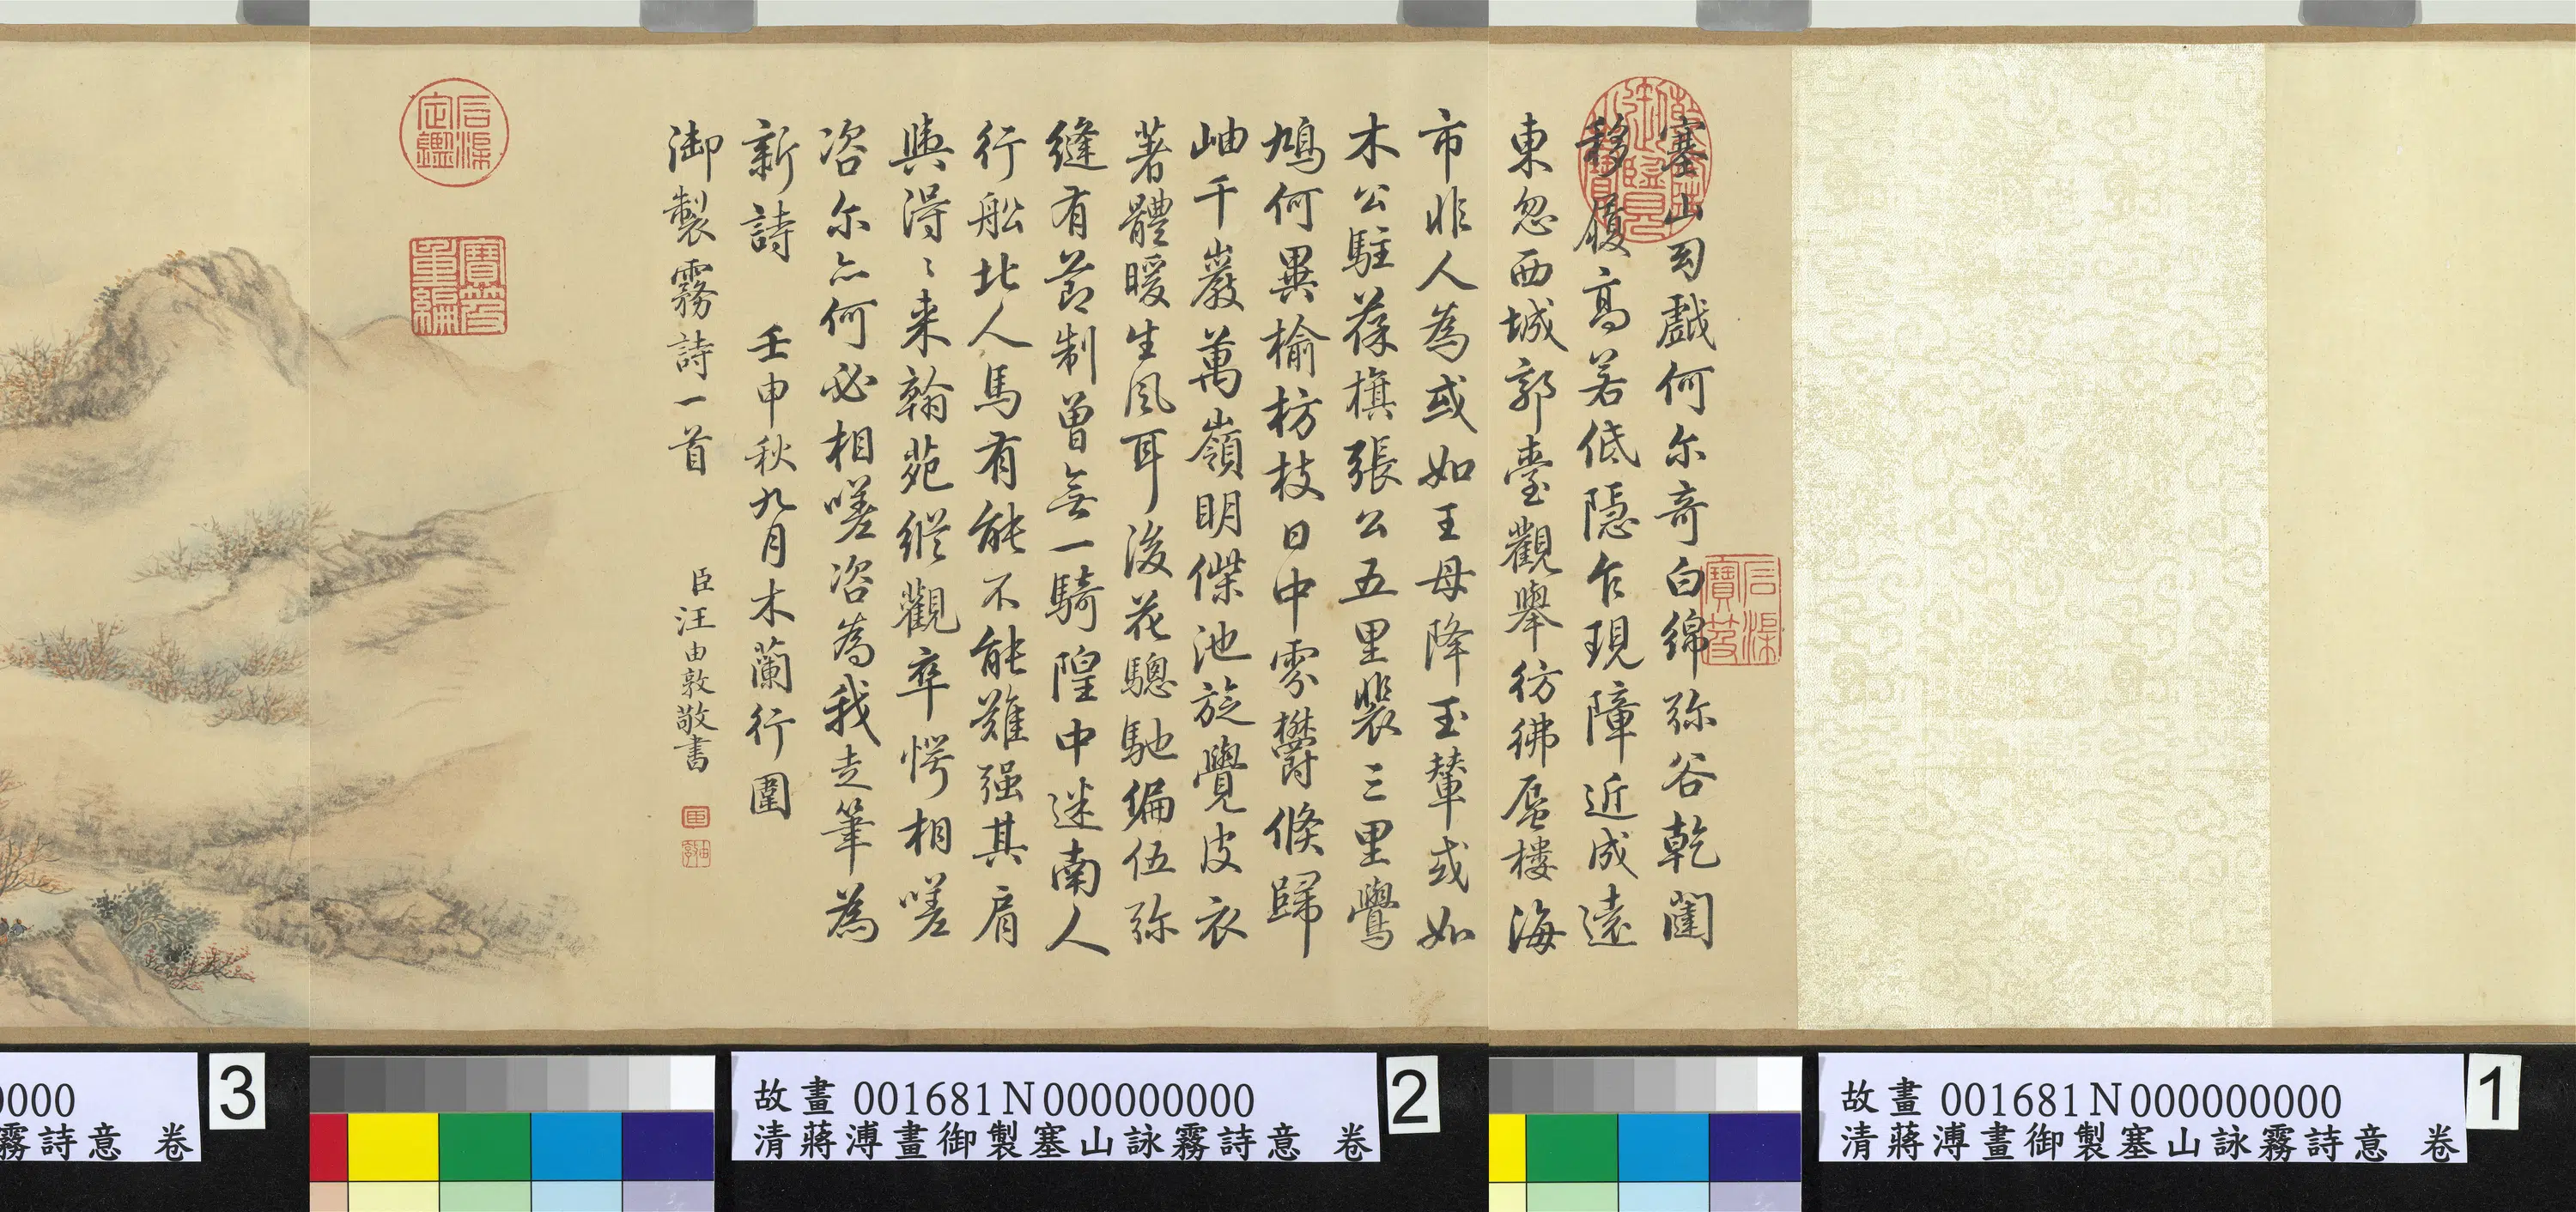 塞山勾戲何尔奇白綿弥谷乾闥
移履高若低隱乍現障近成遠
東忽西城郭臺觀舉彷彿蜃樓海
市非人為或如王母降玉輦或如
木公駐葆旗張公五里裴三里鷽
鳩何異榆枋枝日中雰欝倏歸
岫千巖萬嶺明傑池旋覺皮衣
著體暖生風耳後花驄馳編伍弥
縫有節制曾無一騎隍中迷南人
行船北人馬有能不能難强其肩
輿得得來翰苑縱觀率愕相嗟
咨尔亦何必相嗟咨為我走筆為
新詩 壬申秋九月木蘭行圍
御製霧詩一首
臣汪由敦敬書
石渠寶笈
石渠定鑑
寶笈重編
故畫 001681N000000000
清蔣溥畫御製塞山詠霧詩意 卷
1
故畫 001681N000000000
清蔣溥畫御製塞山詠霧詩意 卷
2
0000
霧詩意 卷
3